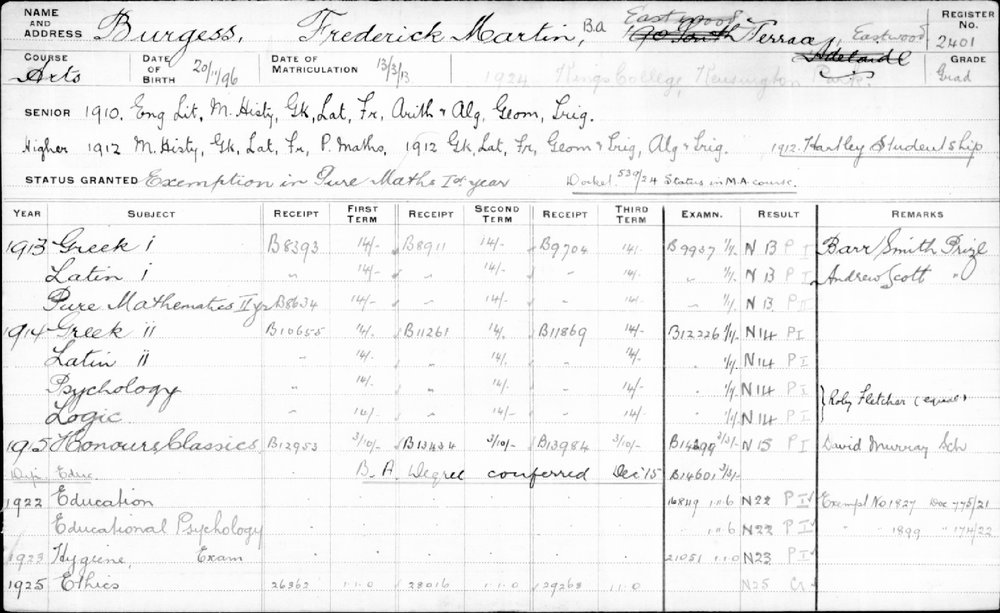 NAME AND ADDRESS Burgess, Frederick Martin, B.a Eastwood 90 South Terrace, Eastwood Adelaide REGISTER No. 2401
COURSE Arts DATE OF BIRTH 20/11/96 DATE OF MATRICULATION 13/3/13 1924 Kings College, Kensington Park. GRADE Grad
SENIOR 1910. Eng Lit, M. Histy, Gk, Lat, Fr, Arith & Alg, Geom, Trig.
Higher 1912 M. Histy, Gk, Lat, Fr, P. Maths, 1912 Gk, Lat, Fr, Geom & Trig, Alg & Trig. 1912. Hartley Studentship
STATUS GRANTED Exemption in Pure Maths Ist year Docket 530/24 Status in M.A course.
YEAR SUBJECT RECEIPT FIRST TERM RECEIPT SECOND TERM RECEIPT THIRD TERM EXAMN. RESULT REMARKS
1913 Greek i B8393 14/- B8911 14/- B9704 14/- B9937 1/1. N 13 P I Barr Smith Prize
Latin i " 14/- " 14/- " 14/- " 1/1. N 13 P I Andrew Scott "
Pure Mathematics II yr B8634 " 1/1. N 13. P
1914 Greek ii B10655 14/- B11261 14/- B11869 14/- B12226 1/1. N14 P I
Latin ii " 14/- " 14/- " 14/- " 1/1. N14 P I
Psychology " 14/- " 14/- " 14/- " 1/1. N14 P I
Logic " 14/- " 14/- " 14/- " 1/1. N14 P I } Roby Fletcher (equal)
1915 Honours Classics B12953 3/10/- B13434 3/10/- B13984 3/10/- 3/3/- N15 P I David Murray Sch
Dip. Educ. B.A. Degree conferred Dec '15 B14601 3/3/-
1922 Education 16849 1.1.6 N22 P I Exempt No 1827 Doc 775/21
Educational Psychology 1.1.6 N22 P I " " 1899 " 174/22
1923 Hygiene, Exam 21051 1.1.0 N23 P I
1925 Ethics 26362 1.1.0 28016 1.1.0 29268 1.1.0 N25 Cr